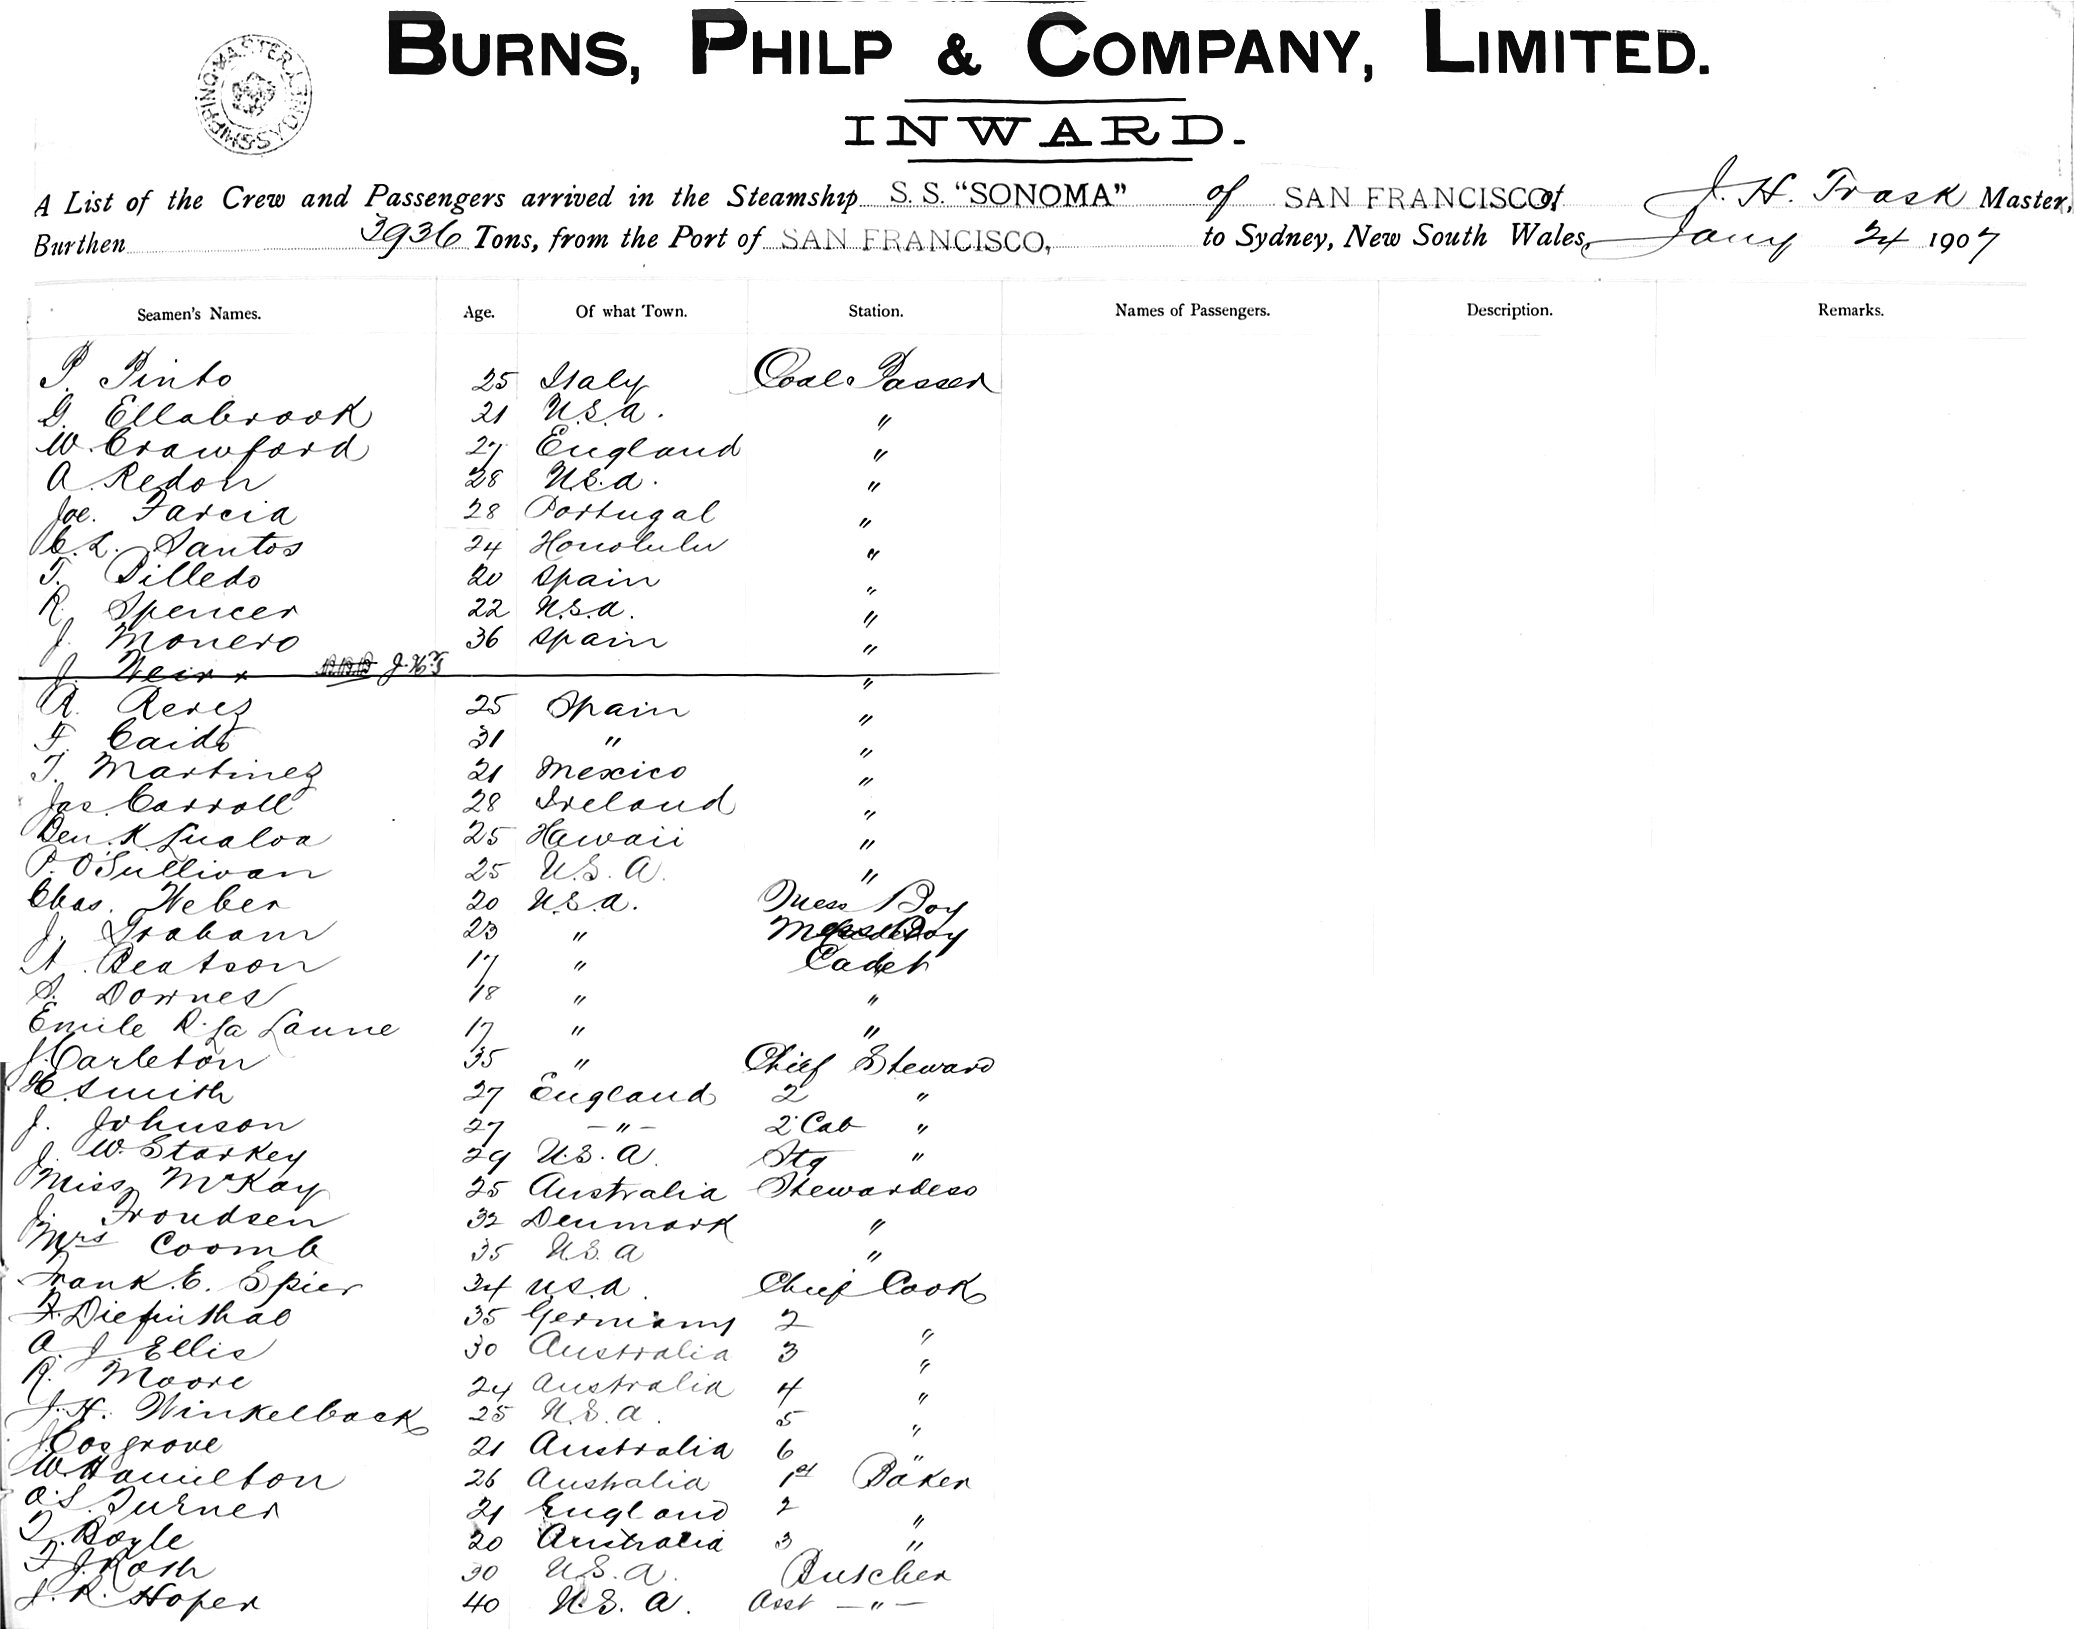 BURNS, PHILP & COMPANY, LIMITED.
SHIPPING MASTER SYDNEY
INWARD.
A List of the Crew and Passengers arrived in the Steamship S. S. "SONOMA" of SAN FRANCISCO of J. H. Trask Master,
Burthen 3936 Tons, from the Port of SAN FRANCISCO, to Sydney, New South Wales, Jany 24 1907
Seamen's Names. Age. Of what Town. Station. Names of Passengers. Description. Remarks.
P. Pinto 25 Italy Coal Passer
G. Ellabrook 21 U.S.A. "
W. Crawford 27 England "
A. Redon 28 U.S.A. "
Joe. Farcia 28 Portugal "
C. L. Santos 24 Honolulu "
T. Pilledo 20 Spain "
R. Spencer 22 U.S.A. "
J. Monero 36 Spain "
J. Weir x J.H.T "
R. Perez 25 Spain "
F. Caido 31 " "
T. Martinez 21 Mexico "
Jas Carroll 28 Ireland "
Ben. K Lualoa 25 Hawaii "
P. O'Sullivan 25 U.S.A. "
Chas. Weber 20 U.S.A. Mess Boy
J. Graham 23 " Mess Boy
A. Beatson 17 " Cadet
S. Downes 18 " "
Emile R. La Laune 17 " "
J. Carleton 35 " Chief Steward
H. Smith 27 England 2 "
J. Johnson 27 - " - 2 Cab "
J. W. Starkey 29 U.S.A. Stg "
Miss McKay 25 Australia Stewardess
J. Froudsen 32 Denmark "
Mrs Coomb 35 U.S.A "
Frank. E. Spier 34 U.S.A. Chief Cook
F. Diefinthal 35 Germany 2 "
A. J. Ellis 30 Australia 3 "
R. Moore 24 Australia 4 "
J. H. Winkelback 25 U.S.A. 5 "
J. Cosgrove 21 Australia 6 "
W. Hamilton 26 Australia 1st Baker
A. S. Turner 21 England 2 "
T. Boyle 20 Australia 3 "
F. J. Roth 30 U.S.A. Butcher
J. R. Hoper 40 U.S.A. Asst - " -